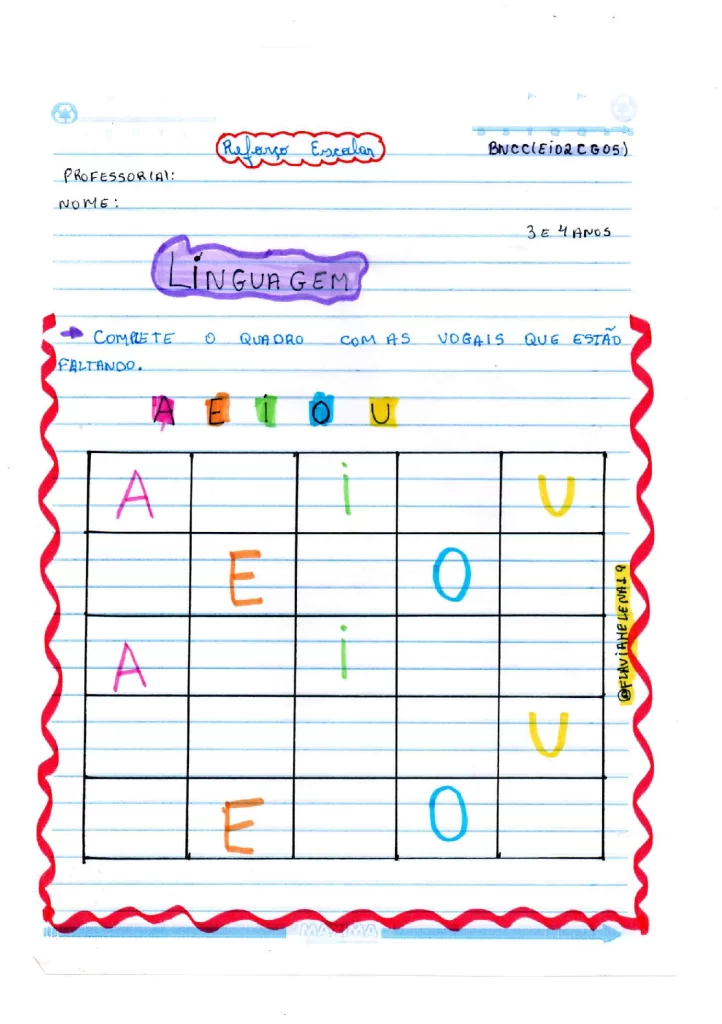 Reforço Escolar
BNCC(EI02CG05)
PROFESSOR(A):
NOME:
3 E 4 ANOS
LINGUAGEM
COMPLETE O QUADRO COM AS VOGAIS QUE ESTÃO
FALTANDO.
A E I O U
A I U
E O
A I
U
E O
@FLAVIAHELENA19
MAXIMA